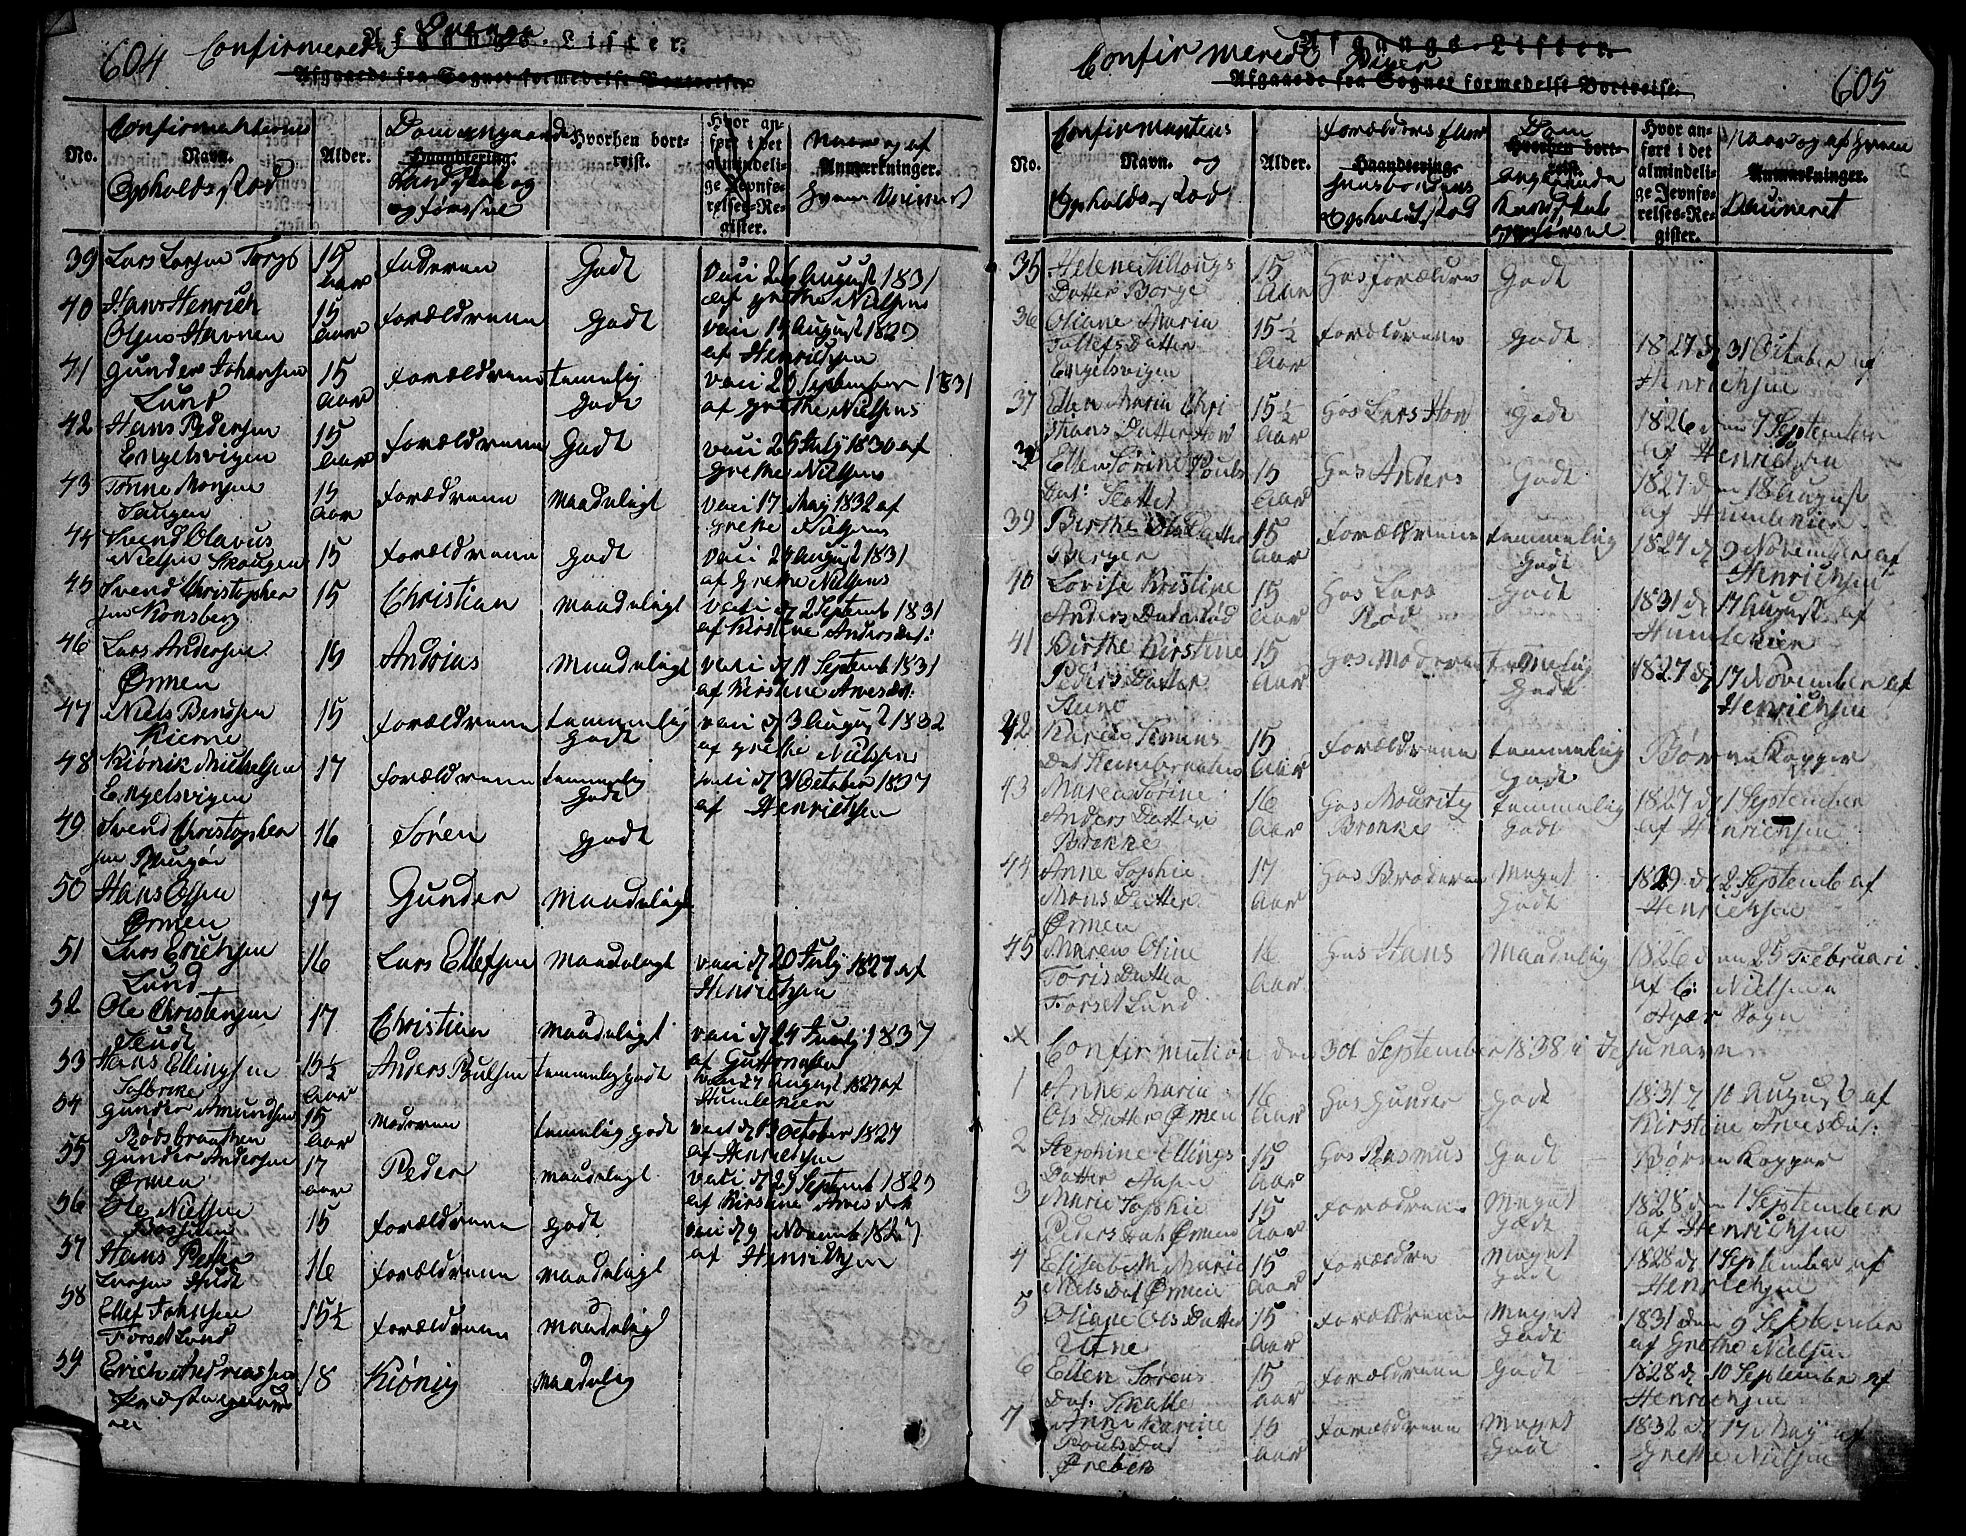 604 Confirmerede Drenge
Afgangs-Lister.
Afgaaede fra Sognet formedelst Bortreise.
No.
Confirmanterne
Navn.
Opholdsstad
Alder.
Dom angaaende
Haandtering.
Kundskab og
opførsel
Hvorhen bort-
reist.
Hvor an-
ført i det
almindeli-
ge Jevnfø-
relses-Re-
gister.
Naar og af
Anmærkninger.
hvem Vaccineret
39 Lars Larsen Torgo 15 Aar faderen Godt vacc 26 August 1831
af Grethe Nielsens
40 Hans Henrich
Olsens Havnen 15 Aar forældrene Godt vacc 14 August 1827
af Henrichsen
41 Gunder Johansen
Lund 15 Aar forældrene temmelig
Godt vacc 26 September 1831
af Grethe Nielsens
42 Hans Pedersen
Engelsvigen 15 Aar forældrene Godt vacc 25 July 1830 af
Grethe Nielsens
43 Tønne Monsen
Tangen 15 Aar forældrene Maadeligt vacc 17 May 1832 af
Grethe Nielsens
44 Svend Olavus
Nielsen Skougen 15 forældrene godt vacc 24 August 1831
af Grethe Nielsens
45 Svend Christopher
sen Konsberg 15 Christian Maadeligt vacc d 2 Septemb 1831
af Kirstine Andersdat:
46 Lars Andersen
Ørmen 15 Andrias Maadeligt vacc d 11 Septemb 1831
af Kirstine Arvesdt.
47 Niels Bendsen
Kierne 15 forældrene temmelig
Godt vacc d 3 August 1832
af Grethe Nielsens
48 Kiønik Michelsen
Engelsvigen 17 forældrene temmelig
Godt vacc d 31 October 1827
af Henrichsen
49 Svend Christopher
sen Raugø 16 Søren Godt
50 Hans Olsen
Ørmen 17 Gunder Maadeligt
51 Lars Erichsen
Lund 16 Lars Ellefsen Maadeligt vacc d 20 July 1827 af
Henrichsen
52 Ole Christensen
17 Christian maadeligt vacc d 24 July 1837
af Guttormsen
53 Hans Ellingsen
15½ Aar Anders Poulsen temmelig godt August 1827 af
Humlekier
54 Gunder Amundsen
Rødsbraathen 15 Aar Moderen temmelig godt vacc d October 1827
af Henrichsen
55 Gunder Andersen
Ørmen 17 Aar Peder maadeligt vacc d 29 Septemb 1827
af Kirstine Arvedat
56 Ole Nielsen
15 forældrene godt vacc d 9 Novemb 1827
af Henrichsen
57 Hans Petter
Larsen 16 forældrene maadeligt
58 Ellef Johnsen
Forset Lund 15½ forældrene maadeligt
59 Erich Andreassen
18 Kiønig Maadelig
Confirmerede Piger 605
Afgangs-Lister.
Afgaaede fra Sognet formedelst Bortreise.
No.
Confirmantens
Navn. og
Opholds Stad
Alder.
Forældres eller
Haandtering.
Huusbondens
Opholdstad
Dom
Hvorhen bort-
reist.
angaaende
Kundskab
og opførsel
Hvor an-
ført i det
almindeli-
ge Jevnfø-
relses-Re-
gister.
Naar og af hvem
Anmærkninger.
Vaccineret
35 Helene
Datter Borge 15 Aar hos forældre Godt
36 Oliane Maria
TollefsDatter
Engelsvigen 15½ Aar forældrene Godt 1827 d 31 October af
Henrichsen
37 Ellen Maria Chri
sthans Datter How 15½ Aar hos Lars How Godt 1826 den 7 September
af Henrichsen
38 Ellen Sørine Pouls
Dat: Slottet 15 Aar hos Anders Godt 1827 den 18 August
af Humlekier
39 Birthe Ols Datter
Berger 15 Aar forældrene temmelig
Godt 1827 d 9 November af
Henrichsen
40 Lovise Kristine
Anders Datter Rød 15 Aar hos Lars
Rød Godt 1831 d 17 August af
Humlekier
41 Birthe Kirstine
Peders Datter
Lund 15 Aar hos Moderen temmelig
Godt 1827 d 17 November af
Henrichsen
42 Karen Simens
Dat 15 Aar forældrene temmelig
Godt Børnekopper
43 Maren Sørine
Anders Datter
Brønke 16 Aar hos Mouritz
Brønke temmelig
Godt 1827 d 1 September
af Henrichsen
44 Anne Sophie
Mons Datter
Ørmen 17 Aar hos Broderen Meget
Godt 1829 d 2 Septemb af
Henrichsen
45 Maren Oline
Toris Datter
Forset Lund 16 Aar hos Hans Maadelig 1826 den 25 Februari
af C: Nielsen
Sogn
x Confirmation den 30t September 1838 i Jesu navn
1 Anne Maria
Ols Datter Ørmen 16 Aar hos Gunder Godt 1831 d 10 August af
Kirstine ArvesDat:
2 Sephine Ellings
Datter 15 Aar hos Rasmus Godt Børnekopper
3 Marie Sophie
Peders Dat Ørmen 15 Aar forældrene Meget
Godt 1828 den 1 September
af Henrichsen
4 Elisabeth Marie
Niels Dat Ørmen 15 Aar forældre Meget
Godt 1828 d 1 September af
Henrichsen
5 Oliane Ols Datter
Utne 15 Aar forældrene Meget
Godt 1831 den 9 September
af Grethe Nielsen
6 Ellen Sørens
Dat: 15 Aar forældrene Godt 1828 d 10 September af
Henrichsen
7 Anne Karine
Pouls Dat
Ørebek 15 Aar forældrene Meget
Godt 1832 d 17 May af
Grethe Nielsen